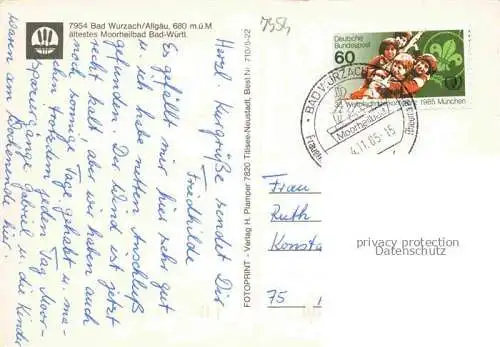 7954 Bad Wurzach/Allgäu, 680 m.ü.M
ältestes Moorheilbad Bad-Württ.
7954
Herzl. Kurgrüße sendet Dir
Friedhilde
Es gefällt mir hier sehr gut
u. ich habe netten Anschluß
gefunden. Der Wind ist jetzt
recht kalt aber wir haben auch
noch sonnige Tage gehabt u. ma-
chen trotzdem jeden Tag Moor-
spaziergänge. Gabriel u. die Kinder
waren am Wochenende hier.
FOTOPRINT - Verlag H. Plamper 7820 Titisee-Neustadt, Best Nr. 710/5-22
Deutsche
Bundespost
60
1985 München
BAD WURZACH
Moorheilbad
4.11.85-15
Frau
Ruth
Konsta
75
privacy protection
Datenschutz